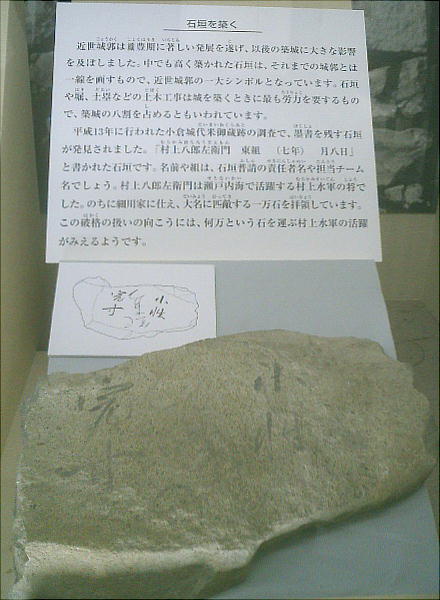 石垣を築く
近世城郭は織豊期に著しい発展を遂げ、以後の築城に大きな影響
を及ぼしました。中でも高く築かれた石垣は、それまでの城郭とは
一線を画すもので、近世城郭の一大シンボルとなっています。石垣
や堀、土塁などの土木工事は城を築くときに最も労力を要するもの
で、築城の八割を占めるともいわれています。
平成13年に行われた小倉城代米御蔵跡の調査で、墨書を残す石垣
が発見されました。「村上八郎左衛門 東組 (七年) 月八日」
と書かれた石垣です。名前や組は、石垣普請の責任者名や担当チーム
名でしょう。村上八郎左衛門は瀬戸内海で活躍する村上水軍の将で
した。のちに細川家に仕え、大名に匹敵する一万石を拝領しています。
この破格の扱いの向こうには、何万という石を運ぶ村上水軍の活躍
がみえるようです。
小性
小性